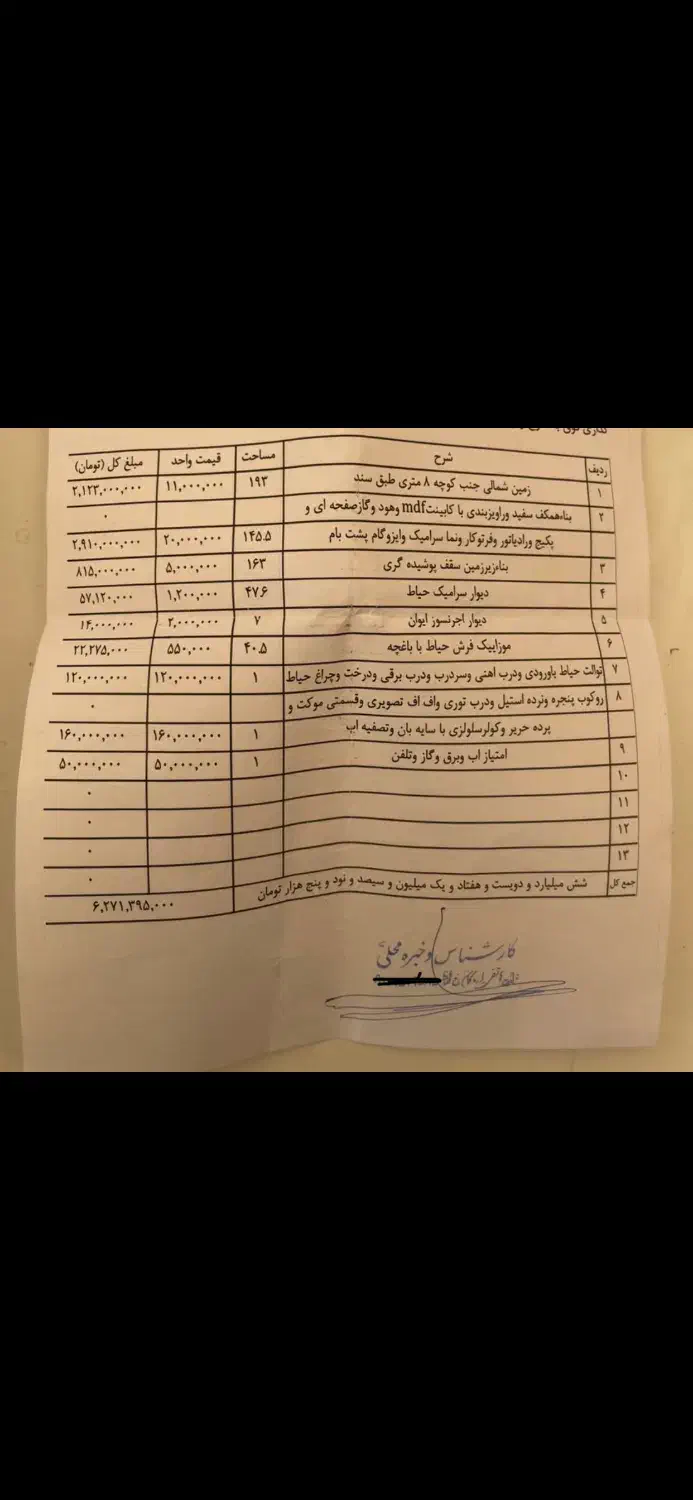 ردیف شرح مساحت قیمت واحد مبلغ کل (تومان)
۱ زمین شمالی جنب کوچه ۸ متری طبق سند ۱۹۳ ۱۱,۰۰۰,۰۰۰ ۲,۱۲۳,۰۰۰,۰۰۰
۲ بناءهمکف سفید وراویزبندی با کابینتmdf وهود وگازصفحه ای و ۰
پکیج ورادیاتور وفرتوکار ونما سرامیک وایزوگام پشت بام ۱۴۵.۵ ۲۰,۰۰۰,۰۰۰ ۲,۹۱۰,۰۰۰,۰۰۰
۳ بناءزیرزمین سقف پوشیده گری ۱۶۳ ۵,۰۰۰,۰۰۰ ۸۱۵,۰۰۰,۰۰۰
۴ دیوار سرامیک حیاط ۴۷.۶ ۱,۲۰۰,۰۰۰ ۵۷,۱۲۰,۰۰۰
۵ دیوار اجرنسوز ایوان ۷ ۲,۰۰۰,۰۰۰ ۱۴,۰۰۰,۰۰۰
۶ موزاییک فرش حیاط با باغچه ۴۰.۵ ۵۵۰,۰۰۰ ۲۲,۲۷۵,۰۰۰
۷ توالت حیاط باورودی ودرب اهنی وسردرب ودرب برقی ودرخت وچراغ حیاط ۱ ۱۲۰,۰۰۰,۰۰۰ ۱۲۰,۰۰۰,۰۰۰
۸ روکوب پنجره ونرده استیل ودرب توری واف اف تصویری وقسمتی موکت و ۰
پرده حریر وکولرسلولزی با سایه بان وتصفیه اب ۱ ۱۶۰,۰۰۰,۰۰۰ ۱۶۰,۰۰۰,۰۰۰
۹ امتیاز اب وبرق وگاز وتلفن ۱ ۵۰,۰۰۰,۰۰۰ ۵۰,۰۰۰,۰۰۰
۱۰ ۰
۱۱ ۰
۱۲ ۰
۱۳ ۰
جمع کل شش میلیارد و دویست و هفتاد و یک میلیون و سیصد و نود و پنج هزار تومان ۶,۲۷۱,۳۹۵,۰۰۰
کارشناس وخبره محلی